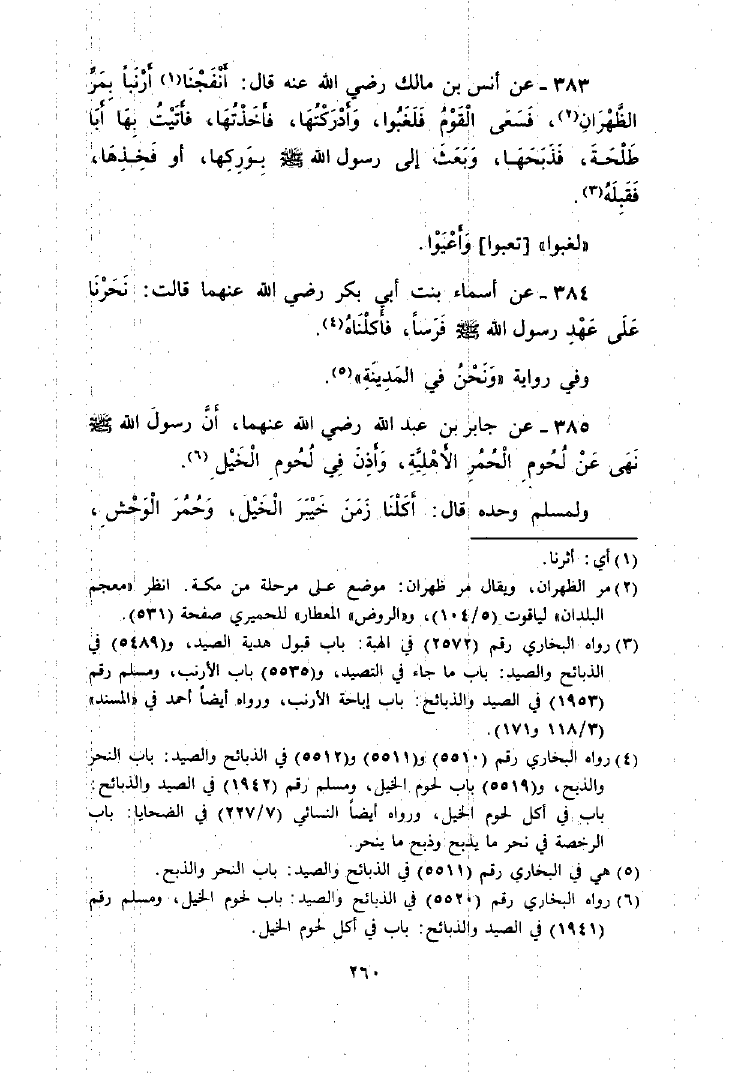 ٣٨٣ - عن أنس بن مالك رضي الله عنه قال: أَنْفَجْنَا(١) أَرْنَباً بِمَرِّ
الظَّهْرَانِ(٢)، فَسَعَى الْقَوْمُ فَلَغَبُوا، وَأَدْرَكْتُهَا، فَأَخَذْتُهَا، فَأَتَيْتُ بِهَا أَبَا
طَلْحَةَ، فَذَبَحَهَا، وَبَعَثَ إلى رسول الله ﷺ بِوَرِكِها، أو فَخِذِهَا،
فَقَبِلَهُ(٣).
«لغبوا» [تعبوا] وَأَعْيَوْا.
٣٨٤ - عن أسماء بنت أبي بكر رضي الله عنهما قالت: نَحَرْنَا
عَلَى عَهْدِ رسول الله ﷺ فَرَساً، فَأَكَلْنَاهُ(٤).
وفي رواية «وَنَحْنُ في المَدِينَةِ»(٥).
٣٨٥ - عن جابر بن عبد الله رضي الله عنهما، أَنَّ رسولَ الله ﷺ
نَهَى عَنْ لُحُومِ الْحُمُرِ الأَهْلِيَّةِ، وَأَذِنَ فِي لُحُومِ الْخَيْلِ(٦).
ولمسلم وحده قال: أَكَلْنَا زَمَنَ خَيْبَرَ الْخَيْلَ، وَحُمُرَ الْوَحْشِ،
(١) أي: أثرنا.
(٢) مر الظهران، ويقال مر ظهران: موضع على مرحلة من مكة. انظر «معجم
البلدان» لياقوت (١٠٤/٥)، و«الروض» المعطار» للحميري صفحة (٥٣١).
(٣) رواه البخاري رقم (٢٥٧٢) في الهبة: باب قبول هدية الصيد، و(٥٤٨٩) في
الذبائح والصيد: باب ما جاء في التصيد، و(٥٥٣٥) باب الأرنب، ومسلم رقم
(١٩٥٣) في الصيد والذبائح: باب إباحة الأرنب، ورواه أيضاً أحمد في «المسند»
١١٨/٣ و١٧١).
(٤) رواه البخاري رقم (٥٥١٠) و(٥٥١١) و(٥٥١٢) في الذبائح والصيد: باب النحر
والذبح، و(٥٥١٩) باب لحوم الخيل، ومسلم رقم (١٩٤٢) في الصيد والذبائح:
باب في أكل لحوم الخيل، ورواه أيضاً النسائي (٢٢٧/٧) في الضحايا: باب
الرخصة في نحر ما يذبح وذبح ما ينحر.
(٥) هي في البخاري رقم (٥٥١١) في الذبائح والصيد: باب النحر والذبح.
(٦) رواه البخاري رقم (٥٥٢٠) في الذبائح والصيد: باب لحوم الخيل، ومسلم رقم
(١٩٤١) في الصيد والذبائح: باب في أكل لحوم الخيل.
٢٦٠